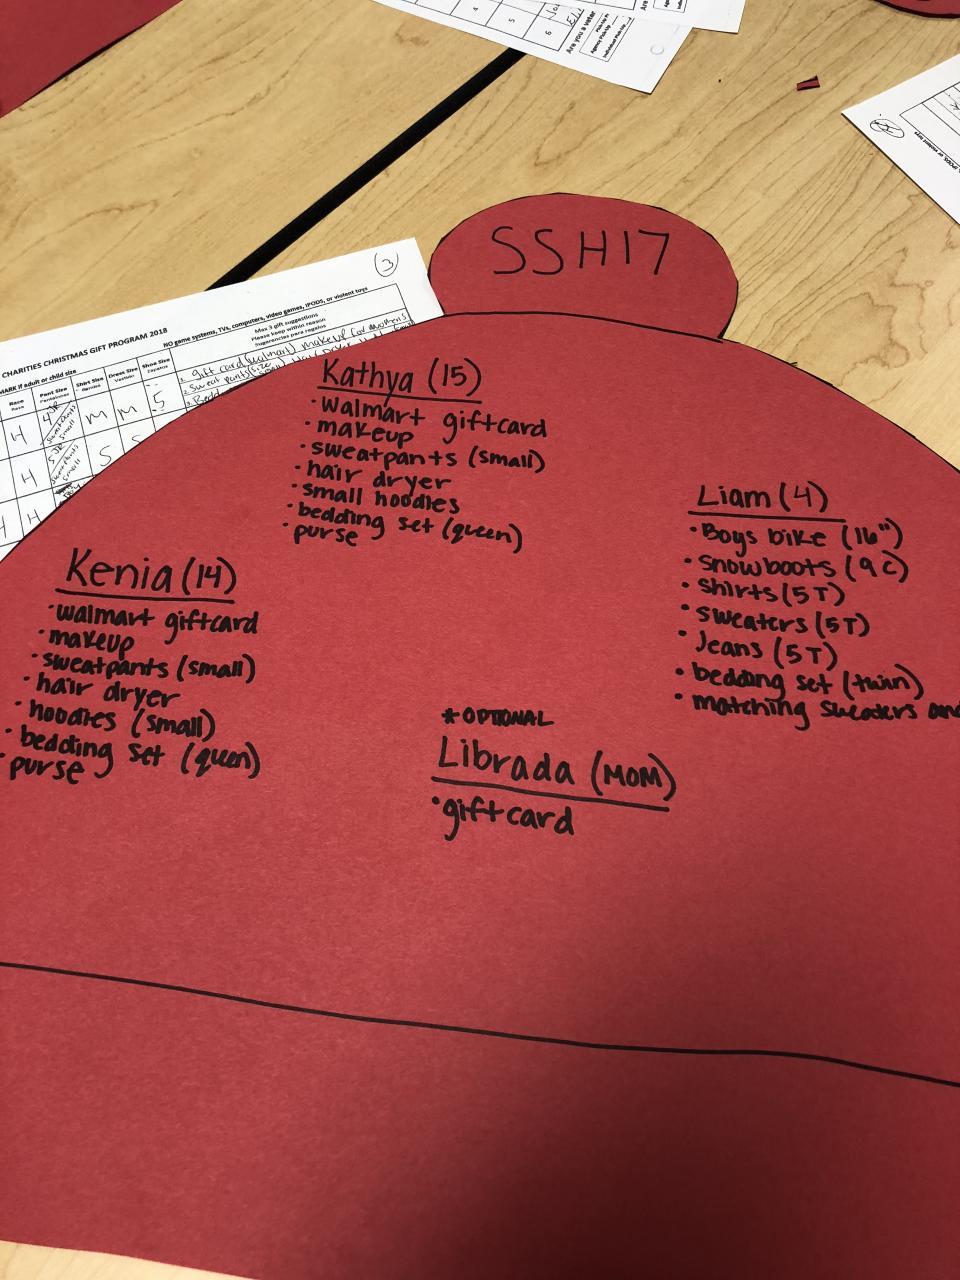 4
5
6
Are you a veter
Agency Pick-Up
Individual Pick-Up
SSH17
3
CHARITIES CHRISTMAS GIFT PROGRAM 2018
NO game systems, TVs, computers, video games, IPODS, or violent toys
MARK if adult or child size
Max 3 gift suggestions
Please keep within reason
Sugerencias para regalos
Race
Pant Size
Shirt Size
Dress Size
Shoe Size
Zapatos
gift card (walmart) makeup
sweat pants
H
M
M
5
H
S
H
Kathya (15)
• walmart giftcard
• makeup
• sweatpants (small)
• hair dryer
• small hoodies
• bedding set (queen)
• purse
Liam (4)
• Boys bike (16")
• snowboots (9C)
• shirts (5T)
• sweaters (5T)
• Jeans (5T)
• bedding set (twin)
• matching sweaters and
Kenia (14)
• walmart giftcard
• makeup
• sweatpants (small)
• hair dryer
• hoodies (small)
• bedding set (queen)
• purse
*OPTIONAL
Librada (MOM)
• giftcard